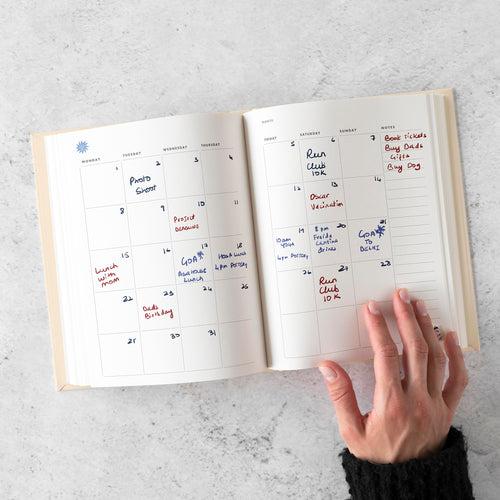 MONDAY TUESDAY WEDNESDAY THURSDAY
1 2 3 4
Photo
Shoot
8 9 10 11
Project
Deadline
15 16 17 18
Lunch
with
mom
GOA
Lunch
22 23 24 25
Dads
Birthday
30 31
SATURDAY SUNDAY NOTES
5 6 7
Run
Club
10K
Book tickets
Buy Dads
Gifts
Buy Dog
12 13 14
Oscar
Vaccination
19 20 21
10am
Yoga
4pm Pottery
8pm
Frida
Cantina
drinks
GOA
TO
DELHI
26 28
Run
Club
10K